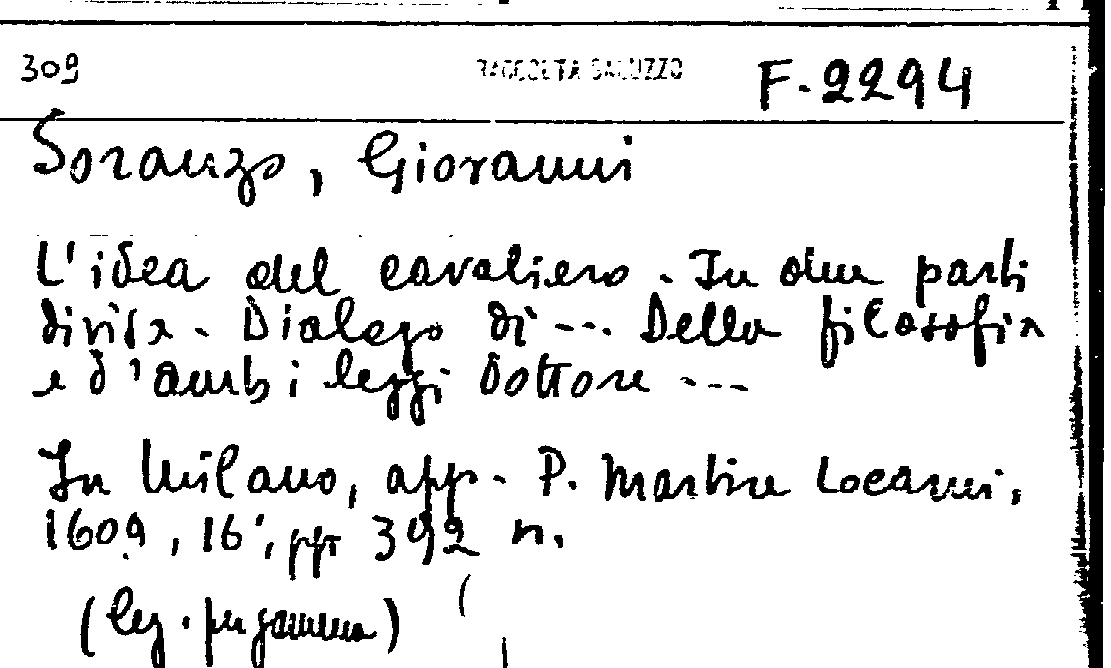 309 RACCOLTA SALUZZO F.2294
Soranzo, Giovanni
L'idea del cavaliero. In due parti
divisa. Dialogo di --- Della filosofia
e d'ambi leggi dottore ---
In Milano, app. P. Martire Locarni,
1609, 16°, pp 392 n.
(leg. pergamena)